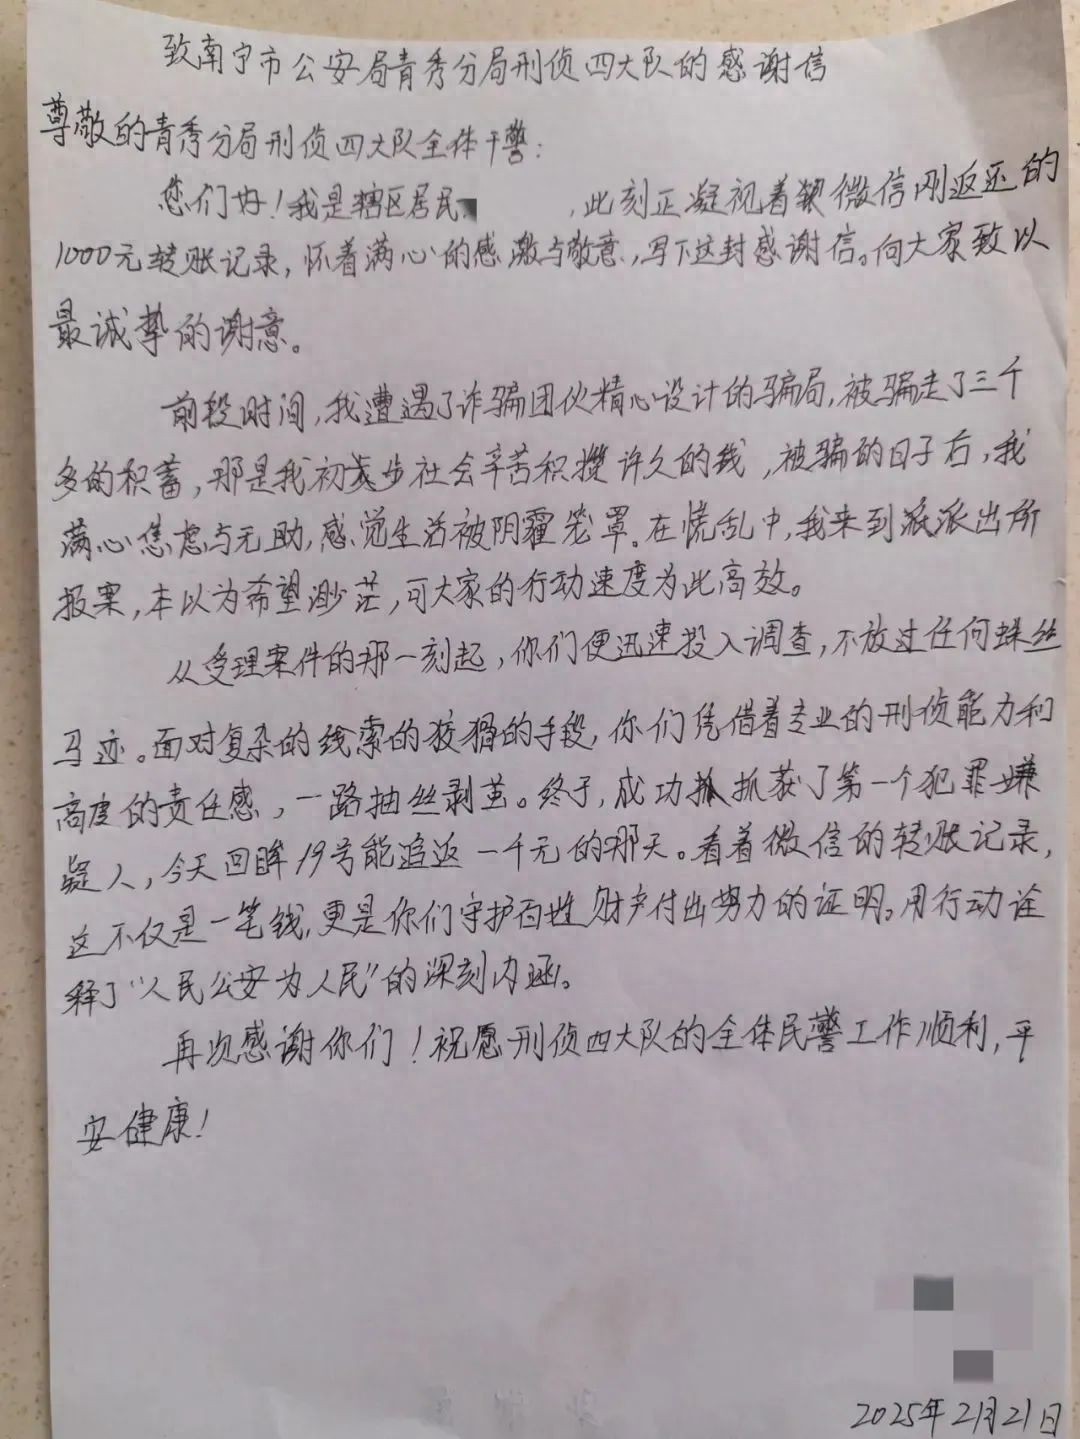 致南宁市公安局青秀分局刑侦四大队的感谢信
尊敬的青秀分局刑侦四大队全体干警:
您们好!我是辖区居民 ,此刻正凝视着微信刚返还的
1000元转账记录,怀着满心的感激与敬意,写下这封感谢信。向大家致以
最诚挚的谢意。
前段时间,我遭遇了诈骗团伙精心设计的骗局,被骗走了三千
多的积蓄,那是我初步社会辛苦积攒许久的钱,被骗的日子右,我
满心焦虑与无助,感觉生活被阴霾笼罩。在慌乱中,我来到派派出所
报案,本以为希望渺茫,可大家的行动速度为此高效。
从受理案件的那一刻起,你们便迅速投入调查,不放过任何蛛丝
马迹。面对复杂的线索的狡猾的手段,你们凭借着专业的刑侦能力和
高度的责任感,一路抽丝剥茧。终于,成功抓获了第一个犯罪嫌
疑人,今天回眸19号能追返一千元的那天。看着微信的转账记录,
这不仅是一笔钱,更是你们守护百姓财产付出努力的证明。用行动诠
释了“人民公安为人民”的深刻内涵。
再次感谢你们!祝愿刑侦四大队的全体民警工作顺利,平
安健康!
2025年2月21日